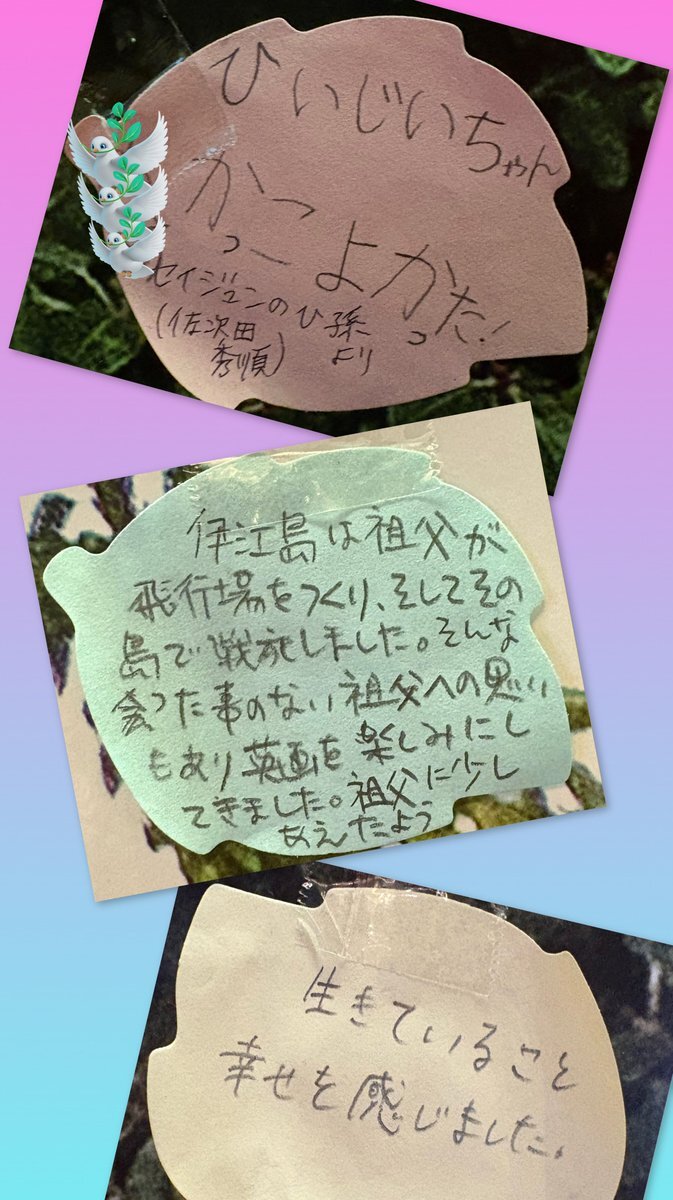 ひいじいちゃん
かっこよかった!
セイジュンのひ孫
(佐次田
秀順) より
伊江島は祖父が
飛行場をつくり、そしてその
島で戦死しました。そんな
会った事のない祖父への思い
もあり英画を楽しみにし
てきました。祖父に少し
あえたよう
生きていること
幸せを感じました。